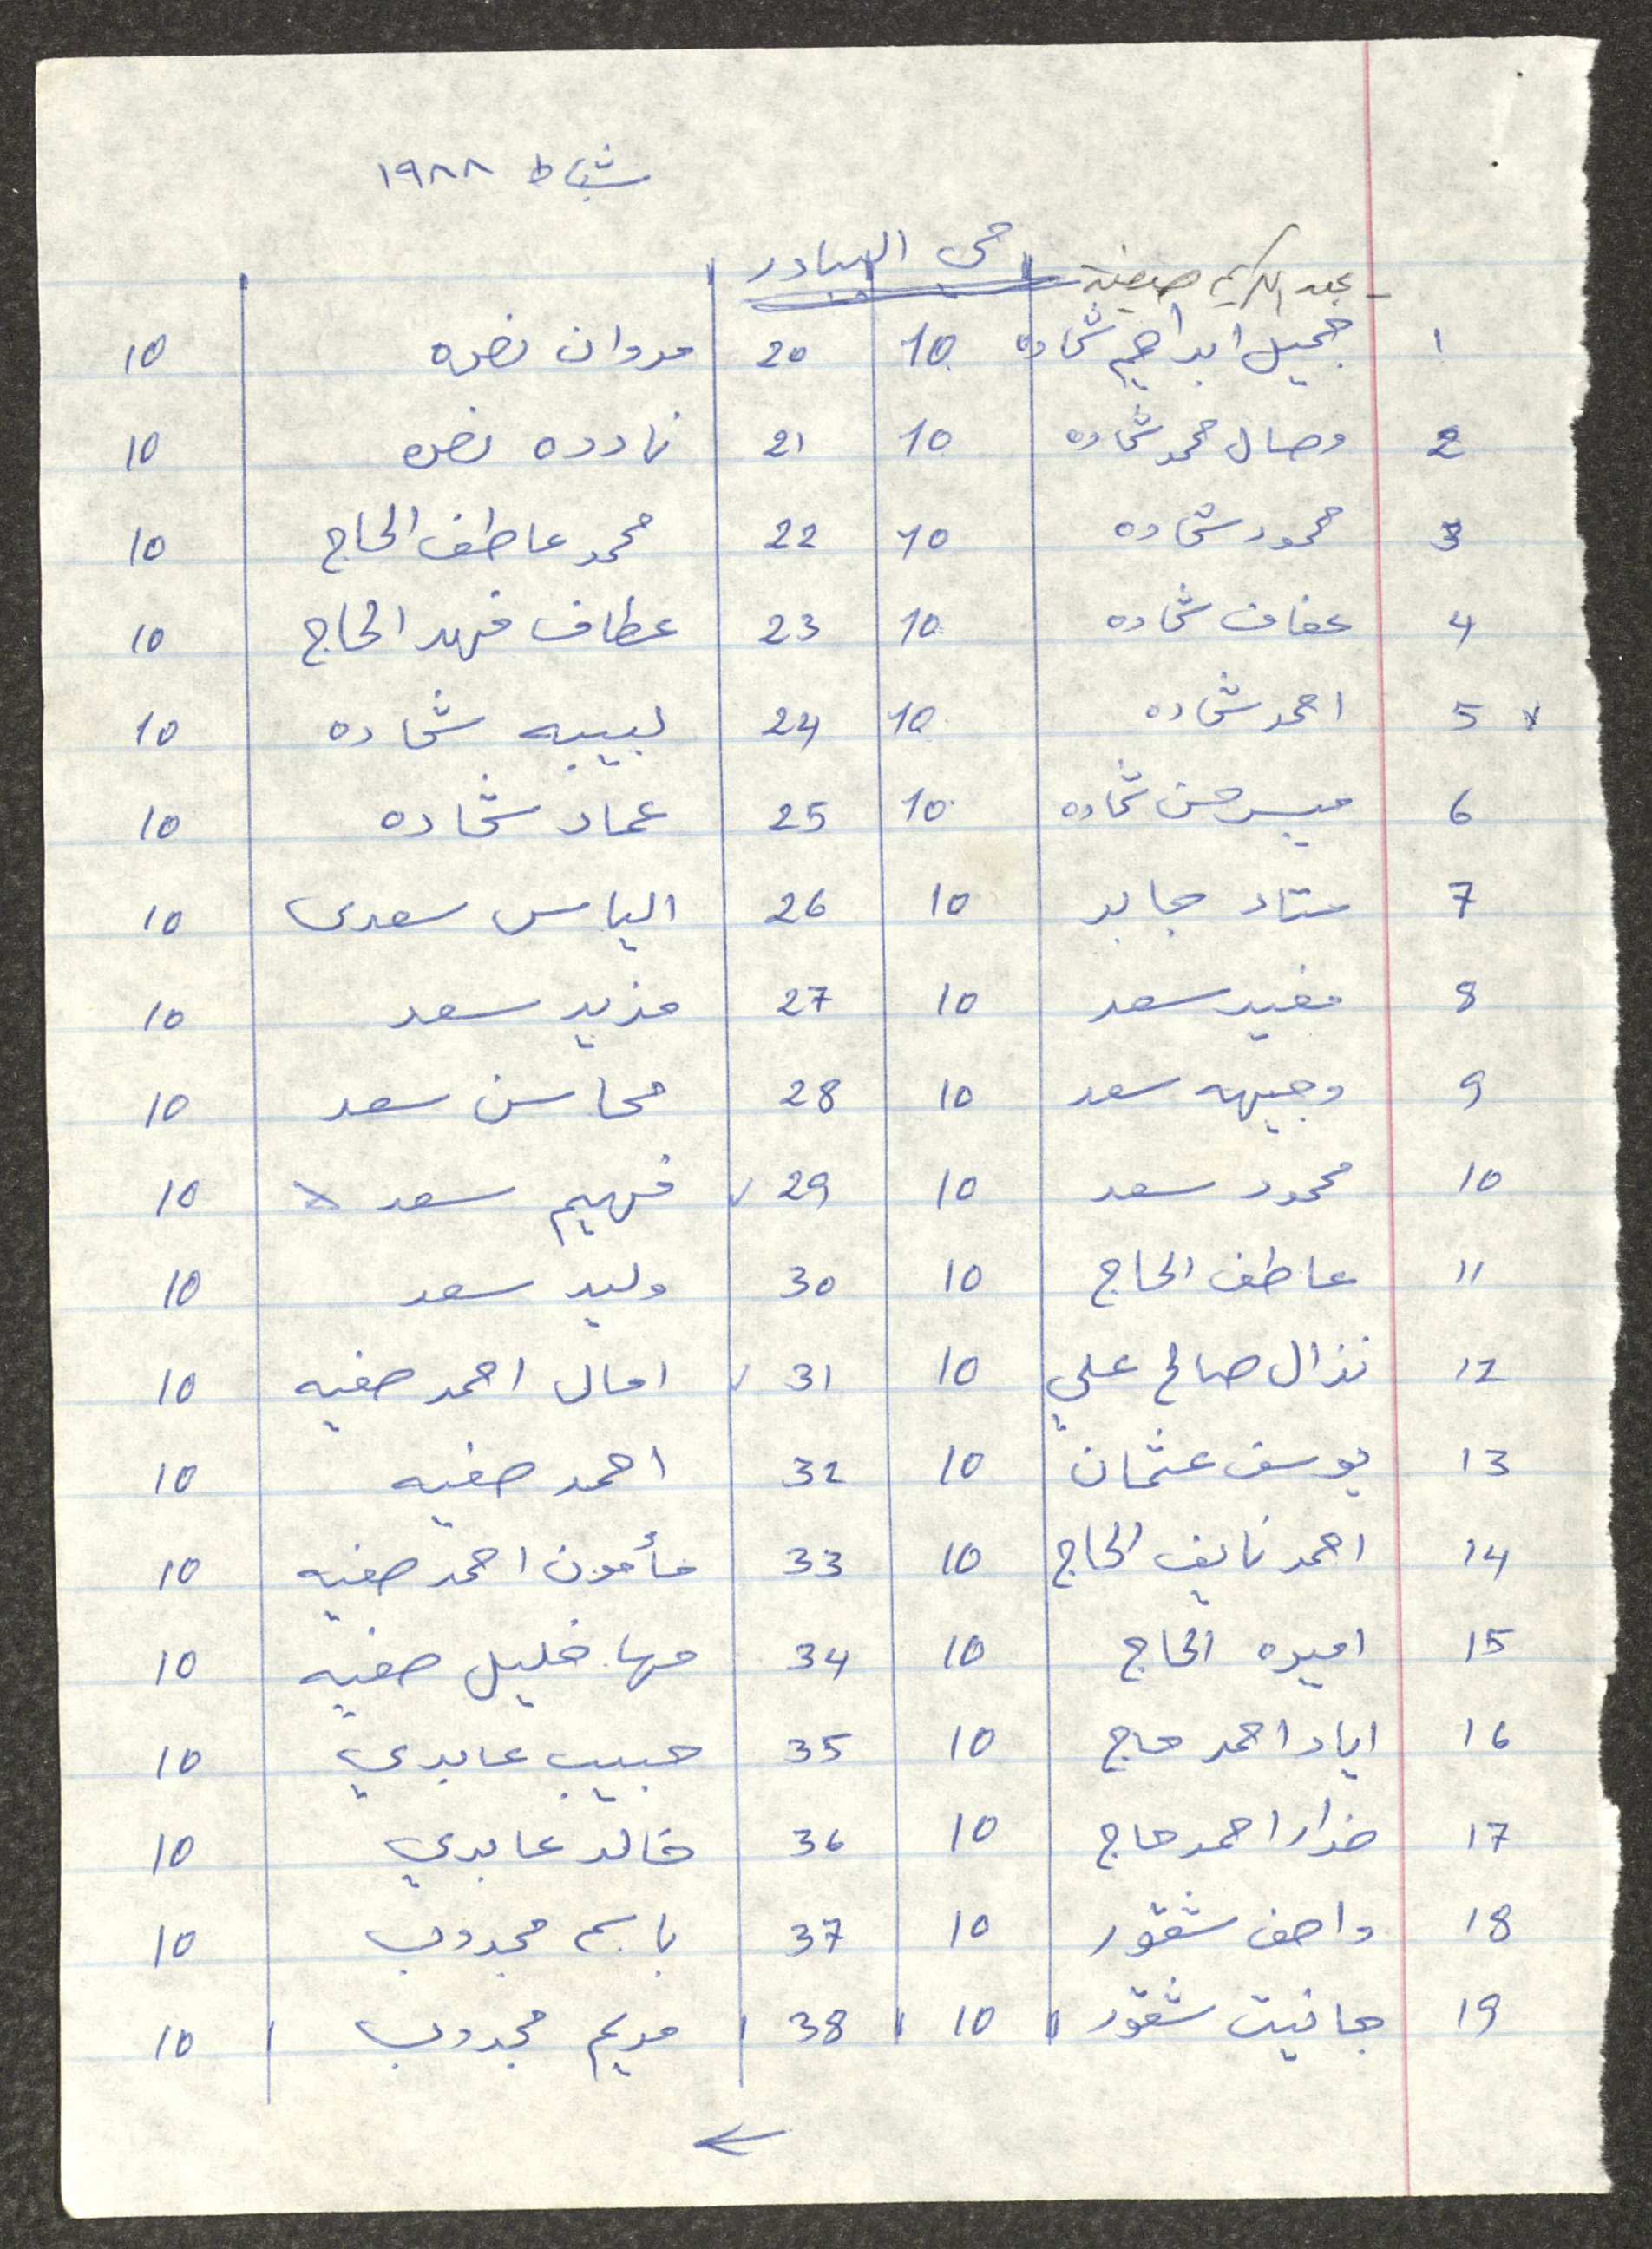 شباط ١٩٨٨
حي البيادر
- عبد الكريم صفية
1 جميل ابراهيم شحاده 10 20 مروان نصره 10
2 وصال محمد شحاده 10 21 نادره نصره 10
3 محمود شحاده 10 22 محمد عاطف الحاج 10
4 عفاف شحاده 10 23 عطاف فهد الحاج 10
x 5 احمد شحاده 10 24 لبيبه شحاده 10
6 ميسر حسن شحاده 10 25 عماد شحاده 10
7 سناد جابر 10 26 الياس سعدى 10
8 مفيد سعد 10 27 مزيد سعد 10
9 وجيهه سعد 10 28 محاسن سعد 10
10 محمود سعد 10 29 ✓ فهيم سعد x 10
11 عاطف الحاج 10 30 وليد سعد 10
12 نزال صالح علي 10 31 ✓ امال احمد صفيه 10
13 يوسف عثمان 10 32 احمد صفيه 10
14 احمد نايف الحاج 10 33 مأمون احمد صفيه 10
15 اميره الحاج 10 34 مها خليل صفيه 10
16 اياد احمد حاج 10 35 حبيب عابدي 10
17 ضرار احمد حاج 10 36 خالد عابدي 10
18 واصف شقور 10 37 باسم مجدوب 10
19 جانيت شقور 10 38 مريم مجدوب 10
←